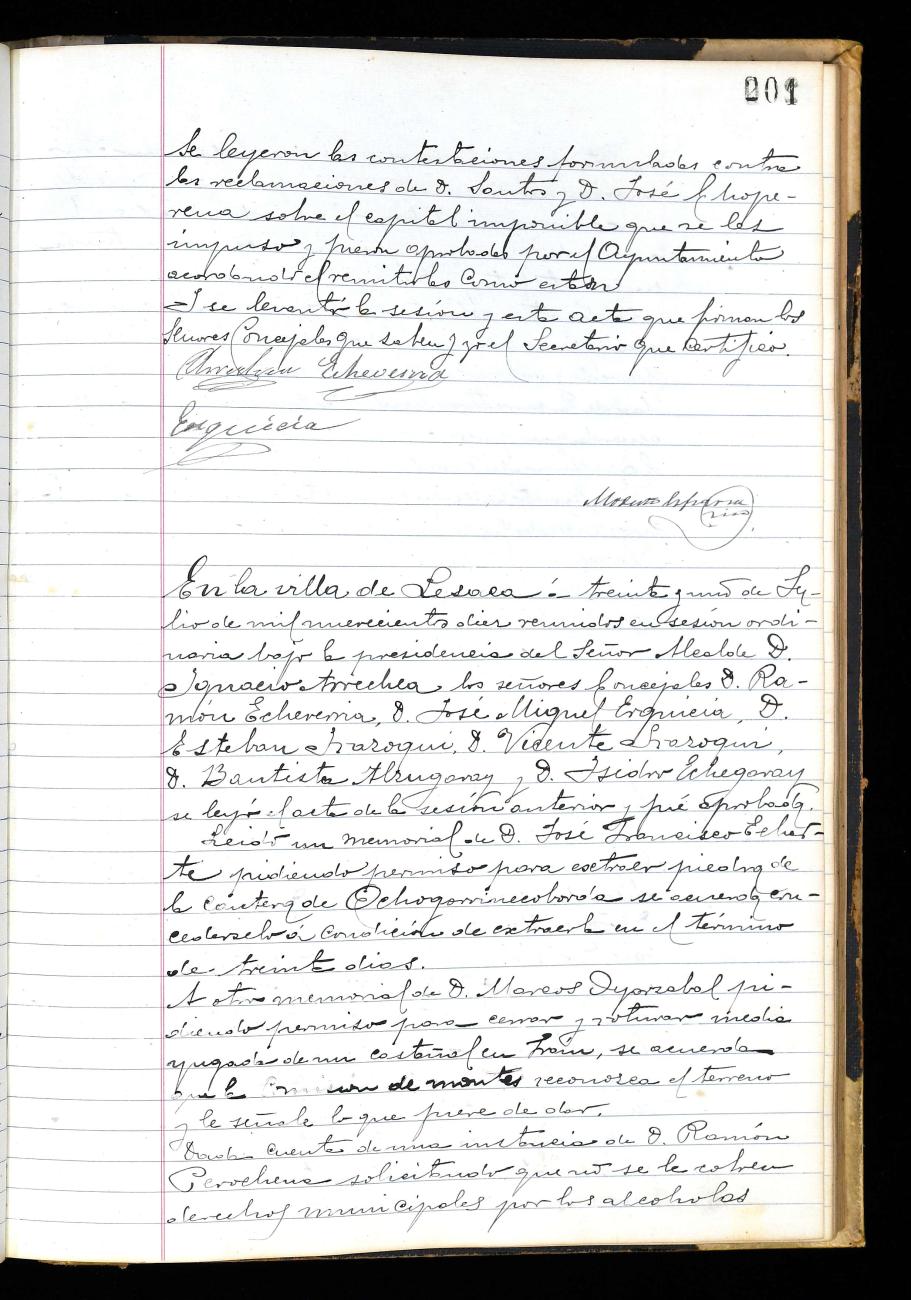 201
Se leyeron las contestaciones formuladas contra
las reclamaciones de D. Santos y D. José Echope-
rena sobre el capital imponible que se les
impuso y fueron aprobadas por el Ayuntamiento
acordando el remitirlas como estan
Y se levantó la sesión y esta acta que firman los
Señores Concejales que saben y yo el Secretario que certifico.
Arrechea Echeverria
Erquicia
En la villa de Lesaca á treinta y uno de Ju-
lio de mil nuevecientos diez reunidos en sesión ordi-
naria bajo la presidencia del Señor Alcalde D.
Ignacio Arrechea los señores Concejales D. Ra-
món Echeverria, D. José Miguel Erquicia, D.
Esteban Irazoqui, D. Vicente Irazoqui,
D. Bautista Alzugaray y D. Isidro Echegaray
se leyó el acta de la sesión anterior y fué aprobada.
Leido un memorial de D. José Francisco Echar-
te pidiendo permiso para extraer piedra de
la cantera de se acuerda con-
cederselo á condición de extraerla en el término
de treinta dias.
A otro memorial de D. Marcos Oyarzabal pi-
diendo permiso para cerrar y roturar media
yugada de un castañal en Frain, se acuerda
que la Comision de montes reconozca el terreno
y le señale lo que fuere de dar.
Dada cuenta de una instancia de D. Ramón
Perochena solicitando que no se le cobren
derechos municipales por los alcoholes